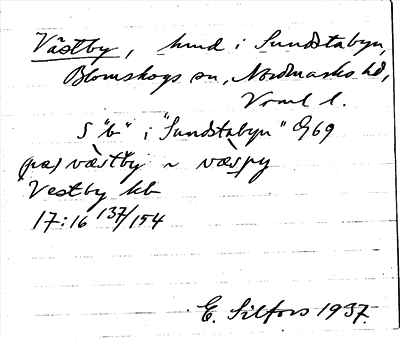 Västby, hmd i Sundstabyn,
Blomskogs sn, Nordmarks hd,
Vrml l.
S "b" i "Sundstabyn" Ö69
på) væstby ~ væspy
Vestby kb
17:16 137/154
E. Silfors 1937.